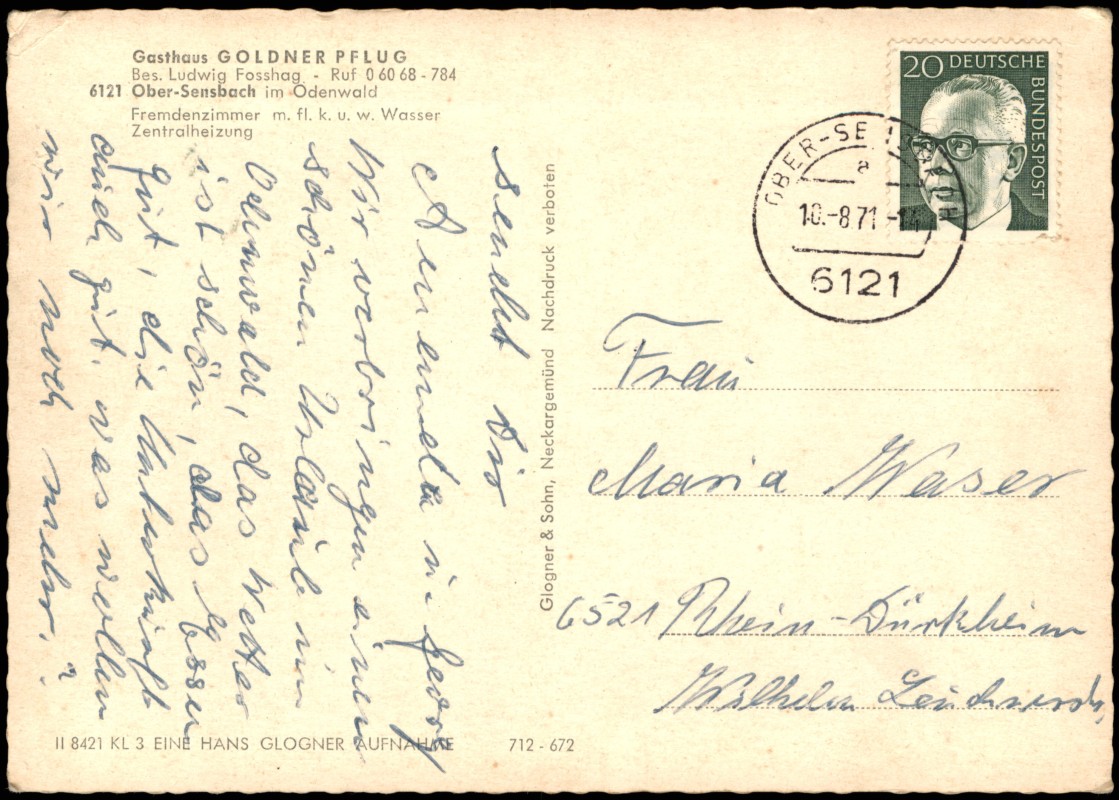 Gasthaus GOLDNER PFLUG
Bes. Ludwig Fosshag - Ruf 0 60 68 - 784
6121 Ober-Sensbach im Odenwald
Fremdenzimmer m. fl. k. u. w. Wasser
Zentralheizung
20 DEUTSCHE BUNDESPOST
OBER-SENSBACH
a
10.-8.71.-14
6121
Wir verbringen einen
schönen Urlaub im
Odenwald, das Wetter
ist schön, das Essen
gut, die Unterkunft
auch gut. was wollen
wir noch mehr.?
sendet Dir
Annemeta u. Georg
Glogner & Sohn, Neckargemünd Nachdruck verboten
Frau
Maria Waser
6521 Rhein-Dürkheim
Wilhelm
II 8421 KL 3 EINE HANS GLOGNER AUFNAHME 712 - 672